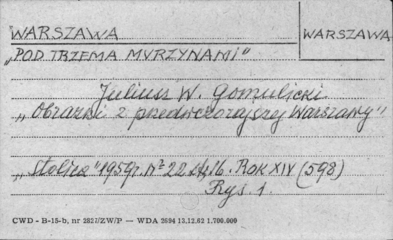 WARSZAWA
WARSZAWA
„POD TRZEMA MURZYNAMI"
Juliusz W. Gomulicki
„Obrazki z przedwczorajszej Warszawy"
„Stolica" 1959r. Nr 22 str. 16. ROK XIV (598)
Rys. 1.
CWD - B-15-b, nr 2827/ZW/P — WDA 2694 13.12.62 1.700.000